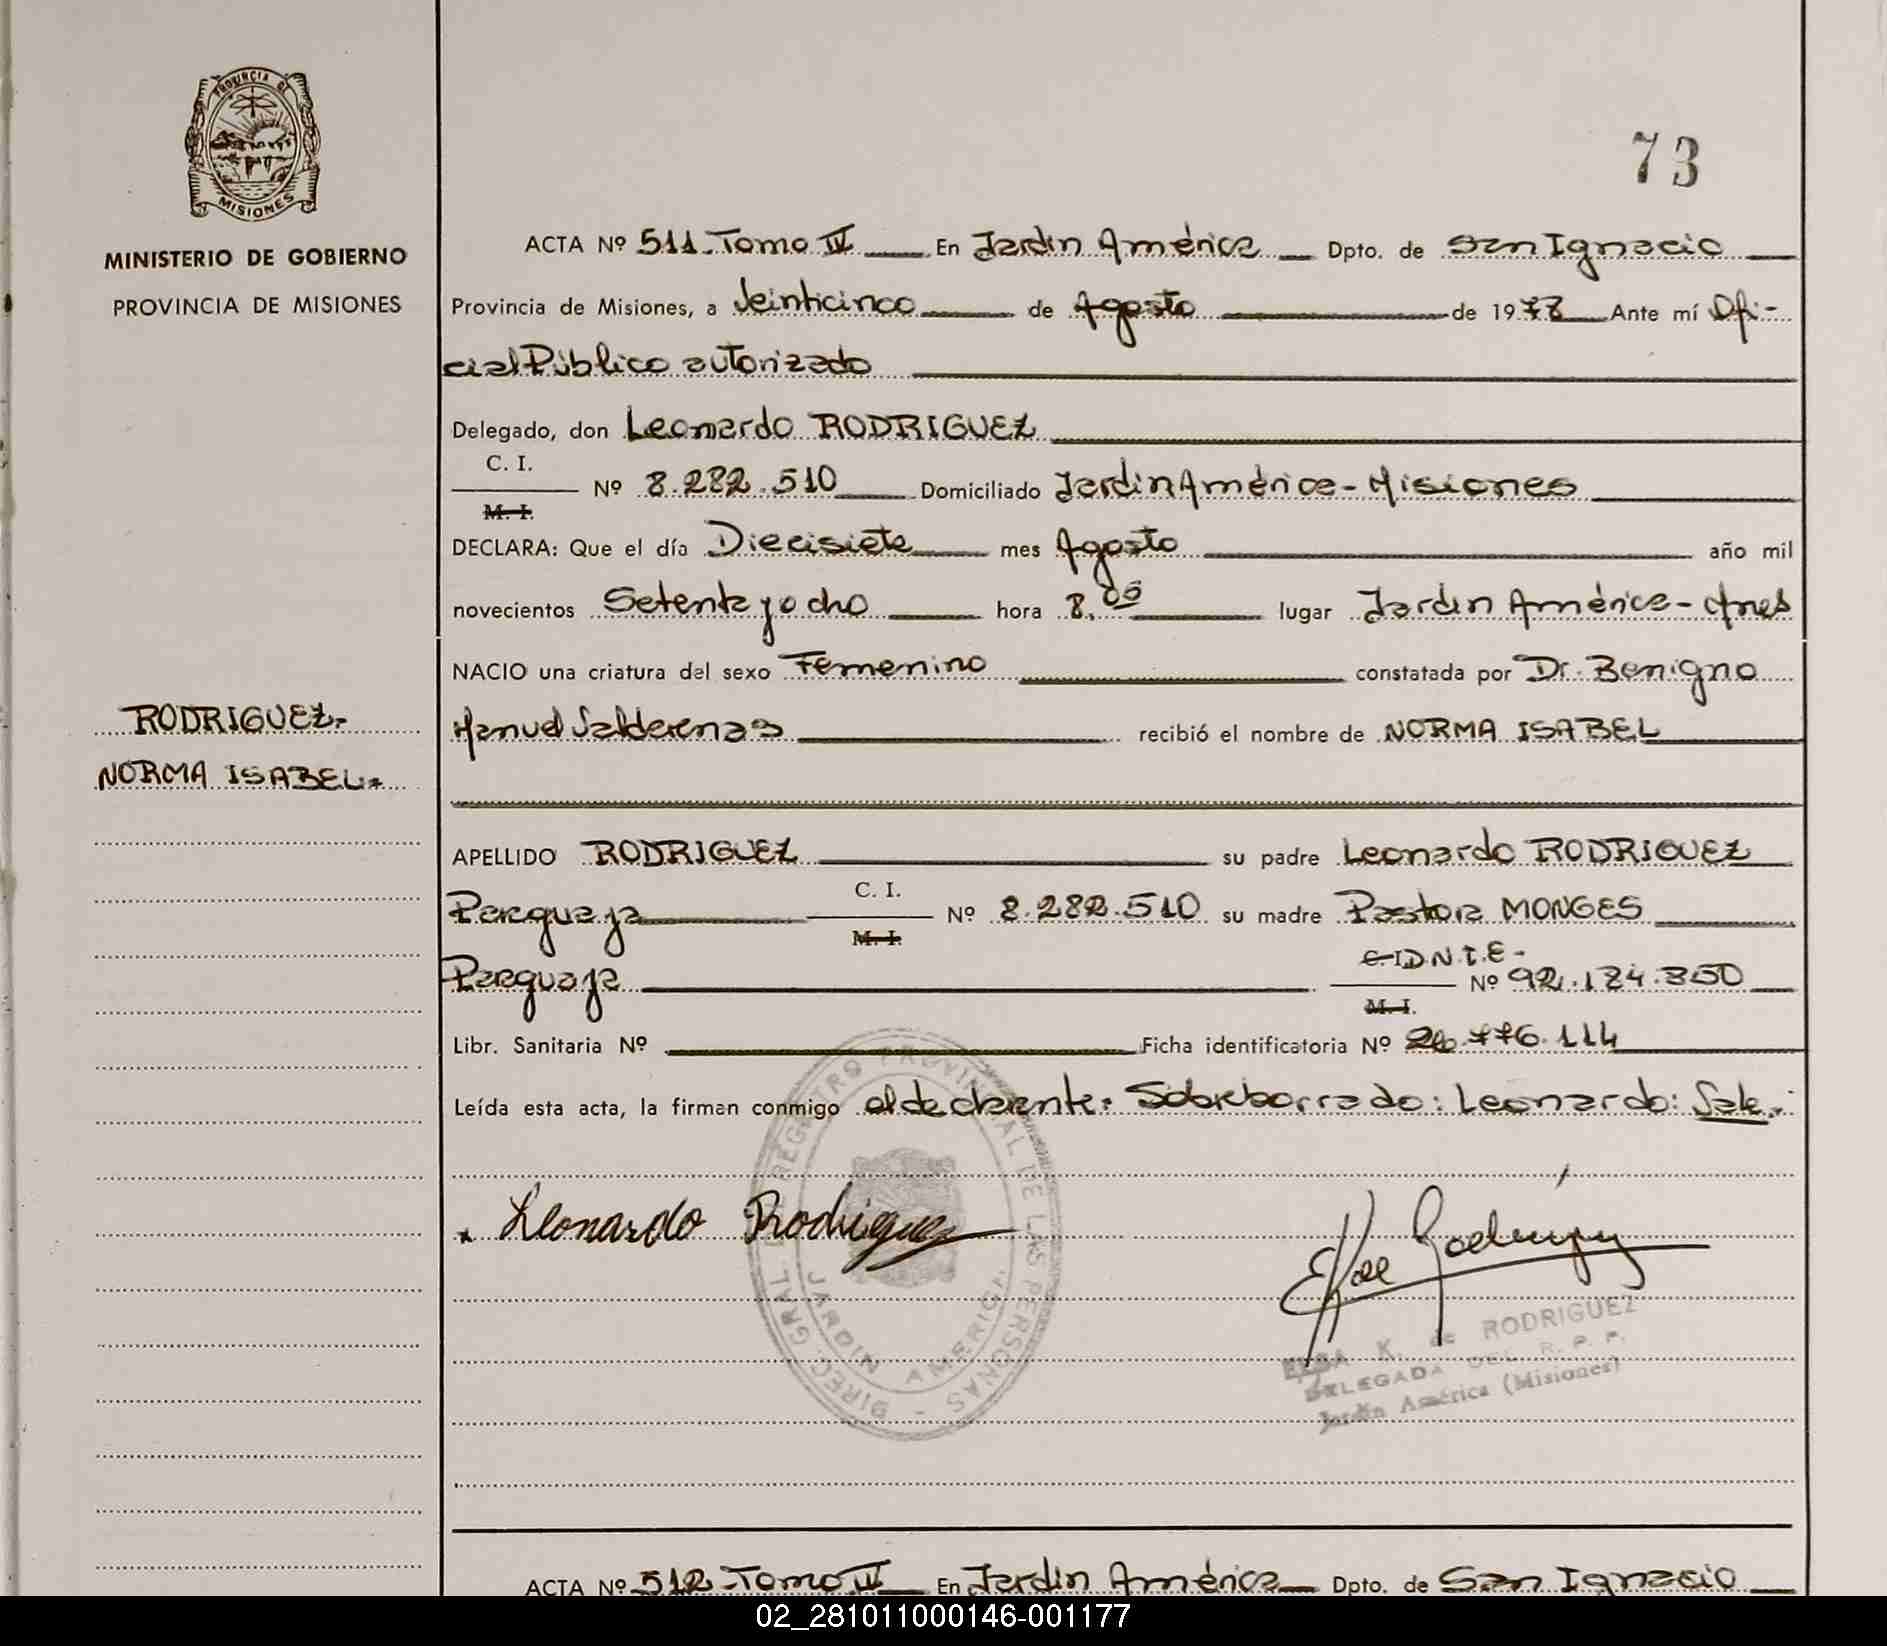 PROVINCIA DE
MISIONES
MINISTERIO DE GOBIERNO
PROVINCIA DE MISIONES
73
ACTA Nº 511. Tomo IV En Jardín América Dpto. de San Ignacio
Provincia de Misiones, a Veinticinco de Agosto de 1978 Ante mí Ofi-
cial Público autorizado
Delegado, don Leonardo RODRIGUEZ
C. I.
Nº 8.282.510 Domiciliado Jardín América - Misiones
M. I.
DECLARA: Que el día Diecisiete mes Agosto año mil
novecientos Setenta y ocho hora 8,00 lugar Jardín América - Mnes
NACIO una criatura del sexo Femenino constatada por Dr. Benigno
RODRIGUEZ.
Manuel recibió el nombre de NORMA ISABEL
NORMA ISABEL.
APELLIDO RODRIGUEZ su padre Leonardo RODRIGUEZ
C. I.
Paraguaya Nº 8.282.510 su madre Pastora MONGES
M. I.
C. I. D.N.I.E-
Paraguaya Nº 92.184.350
M. I.
Libr. Sanitaria Nº Ficha identificatoria Nº 26.776.114
Leída esta acta, la firman conmigo el declarante. Sobreborrado: Leonardo: Vale.
Leonardo Rodriguez
DIREC. GRAL. DE REGISTRO PROVINCIAL DE LAS PERSONAS -
JARDIN AMERICA
K. de RODRIGUEZ
DELEGADA DEL R. P. P.
Jardín América (Misiones)
ACTA Nº 512 - Tomo IV En Jardín América Dpto. de San Ignacio
02_281011000146-001177